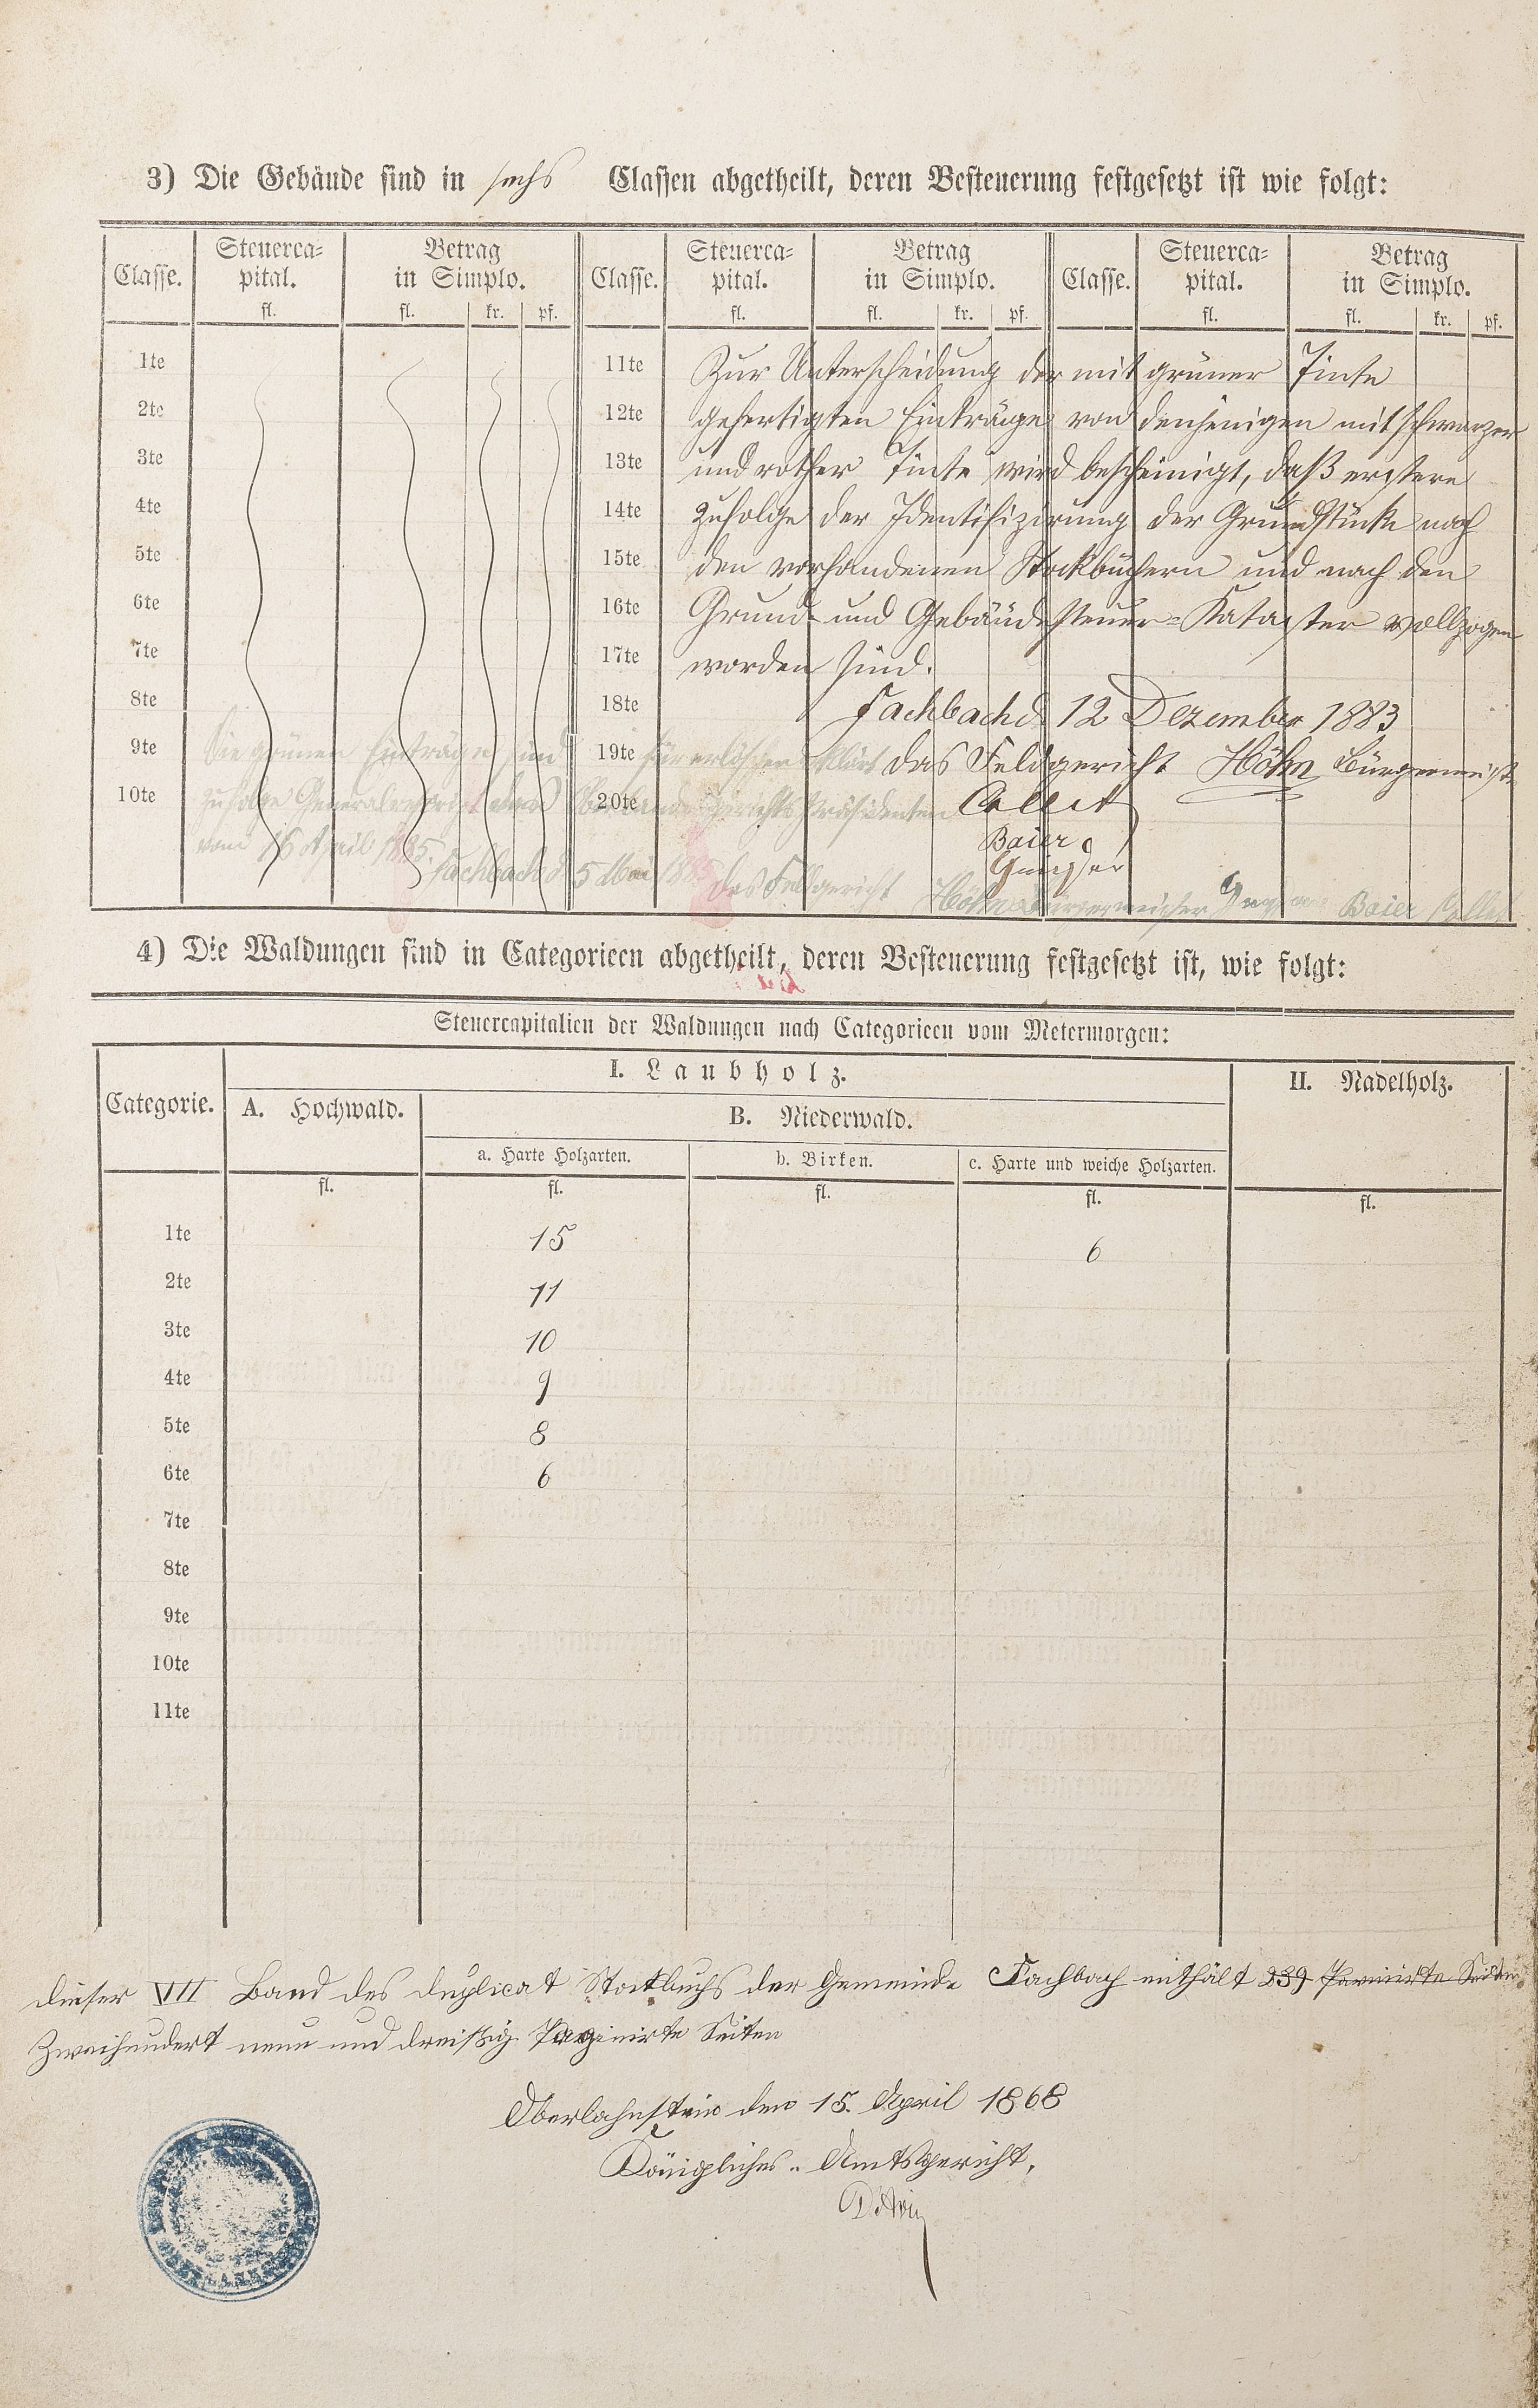 3) Die Gebäude sind in sechs Classen abgetheilt, deren Besteuerung festgesetzt ist wie folgt:
Classe. Steuerca- pital. Betrag in Simplo. Classe. Steuerca- pital. Betrag in Simplo. Classe. Steuerca- pital. Betrag in Simplo.
fl. fl. kr. pf. fl. fl. kr. pf. fl. fl. kr. pf.
1te 11te Zur Unterscheidung der mit grüner Tinte
2te 12te gefertigten Einträge von denjenigen mit schwarzer
3te 13te und rother Tinte wird bescheinigt, daß erstere
4te 14te zufolge der Identifizirung der Grundstücke nach
5te 15te den vorhandenen Stockbüchern und nach den
6te 16te Grund- und Gebäudesteuer-Kataster vollzogen
7te 17te worden sind.
8te 18te Fachbach d. 12 Dezember 1883
9te 19te das Feldgericht Höhn Bürgermeister
10te 20te Collet
Baier
Die grünen Einträge sind für erloschen erklärt
zufolge des Oberlandesgerichts Präsidenten
vom 16 April 1885. Fachbach d. 5 Mai 1885 das Feldgericht Höhn Bürgermeister Baier Collet
4) Die Waldungen sind in Categorieen abgetheilt, deren Besteuerung festgesetzt ist, wie folgt:
Steuercapitalien der Waldungen nach Categorieen vom Metermorgen:
Categorie. I. Laubholz. II. Nadelholz.
A. Hochwald. B. Niederwald.
a. Harte Holzarten. b. Birken. c. Harte und weiche Holzarten.
fl. fl. fl. fl. fl.
1te 15 6
2te 11
3te 10
4te 9
5te 8
6te 6
7te
8te
9te
10te
11te
dieser VII Band des duplicat Stockbuchs der Gemeinde Fachbach enthält 239 Paginirte Seiten
Zweihundert neun und dreißig Paginirte Seiten
Oberlahnstein den 15. April 1868
Königliches Amtsgericht.